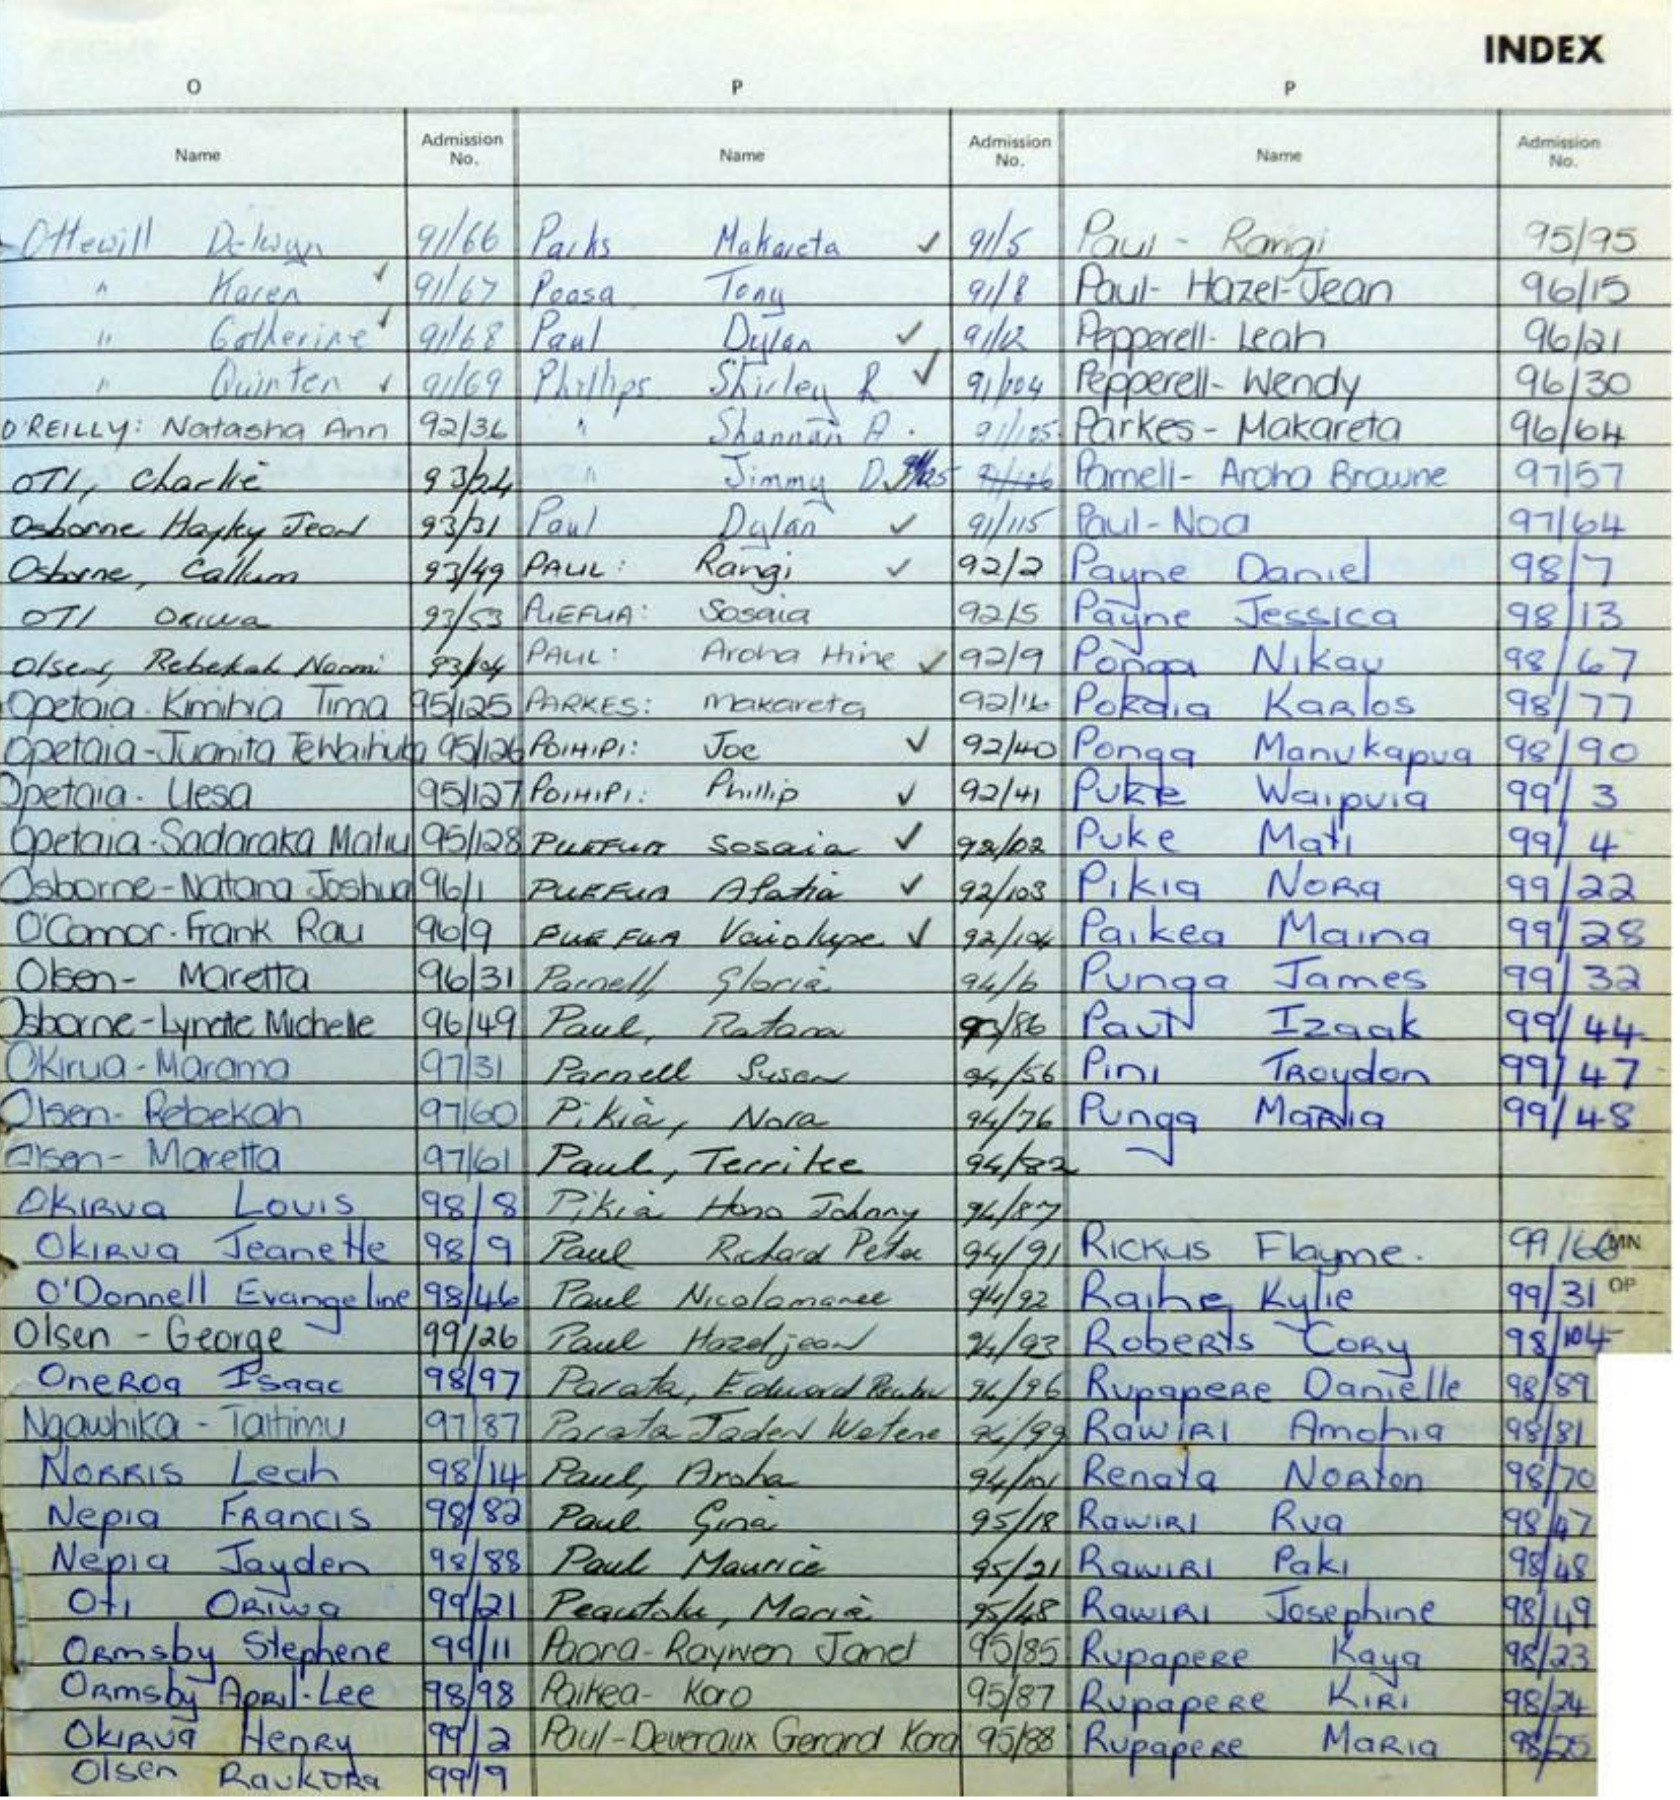 INDEX
O
Name Admission No.
Ottewill Delwyn 91/66
" Karen ✓ 91/67
" Catherine ✓ 91/68
" Quinten ✓ 91/69
O'REILLY: Natasha Ann 92/36
OTI, Charlie 93/24
Osborne Hayley Jean 93/31
Osborne, Callum 93/49
OTI ORIWA 93/53
Olsen, Rebekah Naomi
Opetaia. Kimihia Tima 95/125
Opetaia-Juanita TeWaihuta 95/126
Opetaia. Uesa 95/127
Opetaia-Sadaraka Matiu 95/128
Osborne-Natana Joshua 96/1
O'Connor. Frank Rau 96/9
Olsen- Maretta 96/31
Osborne-Lynette Michelle 96/49
Okirua-Marama 97/31
Olsen-Rebekah 97/60
Olsen-Maretta 97/61
OKIRUA Louis 98/8
OKIRUA Jeanette 98/9
O'Donnell Evangeline 98/46
Olsen - George 99/26
OneRoa Isaac 98/97
Ngawhika - Taitimu 97/87
NORRIS Leah 98/14
Nepia FRANCIS 98/82
Nepia Jayden 98/88
Oti ORiwa 99/21
ORmsby Stephene 99/11
ORmsby April-Lee 98/98
OKIRUA Henry 99/2
Olsen RauKURa 99/9
P
Name Admission No.
Parks Makareta ✓ 91/5
Poasa Tony 91/8
Paul Dylan ✓ 91/12
Phillips Shirley R ✓ 91/104
" Shannan A. 91/105
" Jimmy D.
Paul Dylan ✓ 91/115
PAUL: Rangi ✓ 92/2
PUEFUA: Sosaia 92/5
PAUL: Aroha Hine ✓ 92/9
PARKES: Makareta 92/16
POIHIPI: Joe ✓ 92/40
POIHIPI: Phillip ✓ 92/41
PUEFUA Sosaia ✓ 92/102
PUEFUA Afatia ✓ 92/103
PUEFUA Vaiolupe ✓ 92/104
Parnell, Gloria 94/6
Paul, Ratana 93/86
Parnell Susan 94/56
Pikia, Nora 94/76
Paul, Territee 94/82
Pikia Hona Johnny 94/87
Paul Richard Peter 94/91
Paul Nicolamaree 94/92
Paul Hazeljean 94/93
Parata, Edward 94/96
Parata Jaden Wetene 94/99
Paul, Aroha 94/101
Paul Gina 95/18
Paul Maurice 95/21
Peautolu, Maria 95/48
Paora-Raywen Janet 95/85
Paikea- Koro 95/87
Paul-Deveraux Gerard Kora 95/88
P
Name Admission No.
Paul - Rangi 95/95
Paul- Hazel-Jean 96/15
Pepperell- Leah 96/21
Pepperell- Wendy 96/30
Parkes- Makareta 96/64
Parnell- Aroha Browne 97/57
Paul-Noa 97/64
Payne Daniel 98/7
Payne Jessica 98/13
Ponga Nikau 98/67
Pokaia KaRlos 98/77
Ponga Manukapua 98/90
Puke Waipuia 99/3
Puke Mati 99/4
Pikia NoRa 99/22
Paikea Maina 99/28
Punga James 99/32
Paul Izaak 99/44
Pini TRoydon 99/47
Punga MaRia 99/48
RICKUS Flayme. 99/66
MN
Raihe Kylie 99/31
OP
RobeRts CoRy 98/104
RupapeRe Danielle 98/89
RawiRi Amohia 98/81
Renata NoRton 98/70
RawiRi Rua 98/47
RawiRi Paki 98/48
RawiRi Josephine 98/49
RupapeRe Kaya 98/23
RupapeRe KiRi 98/24
RupapeRe MaRia 98/25